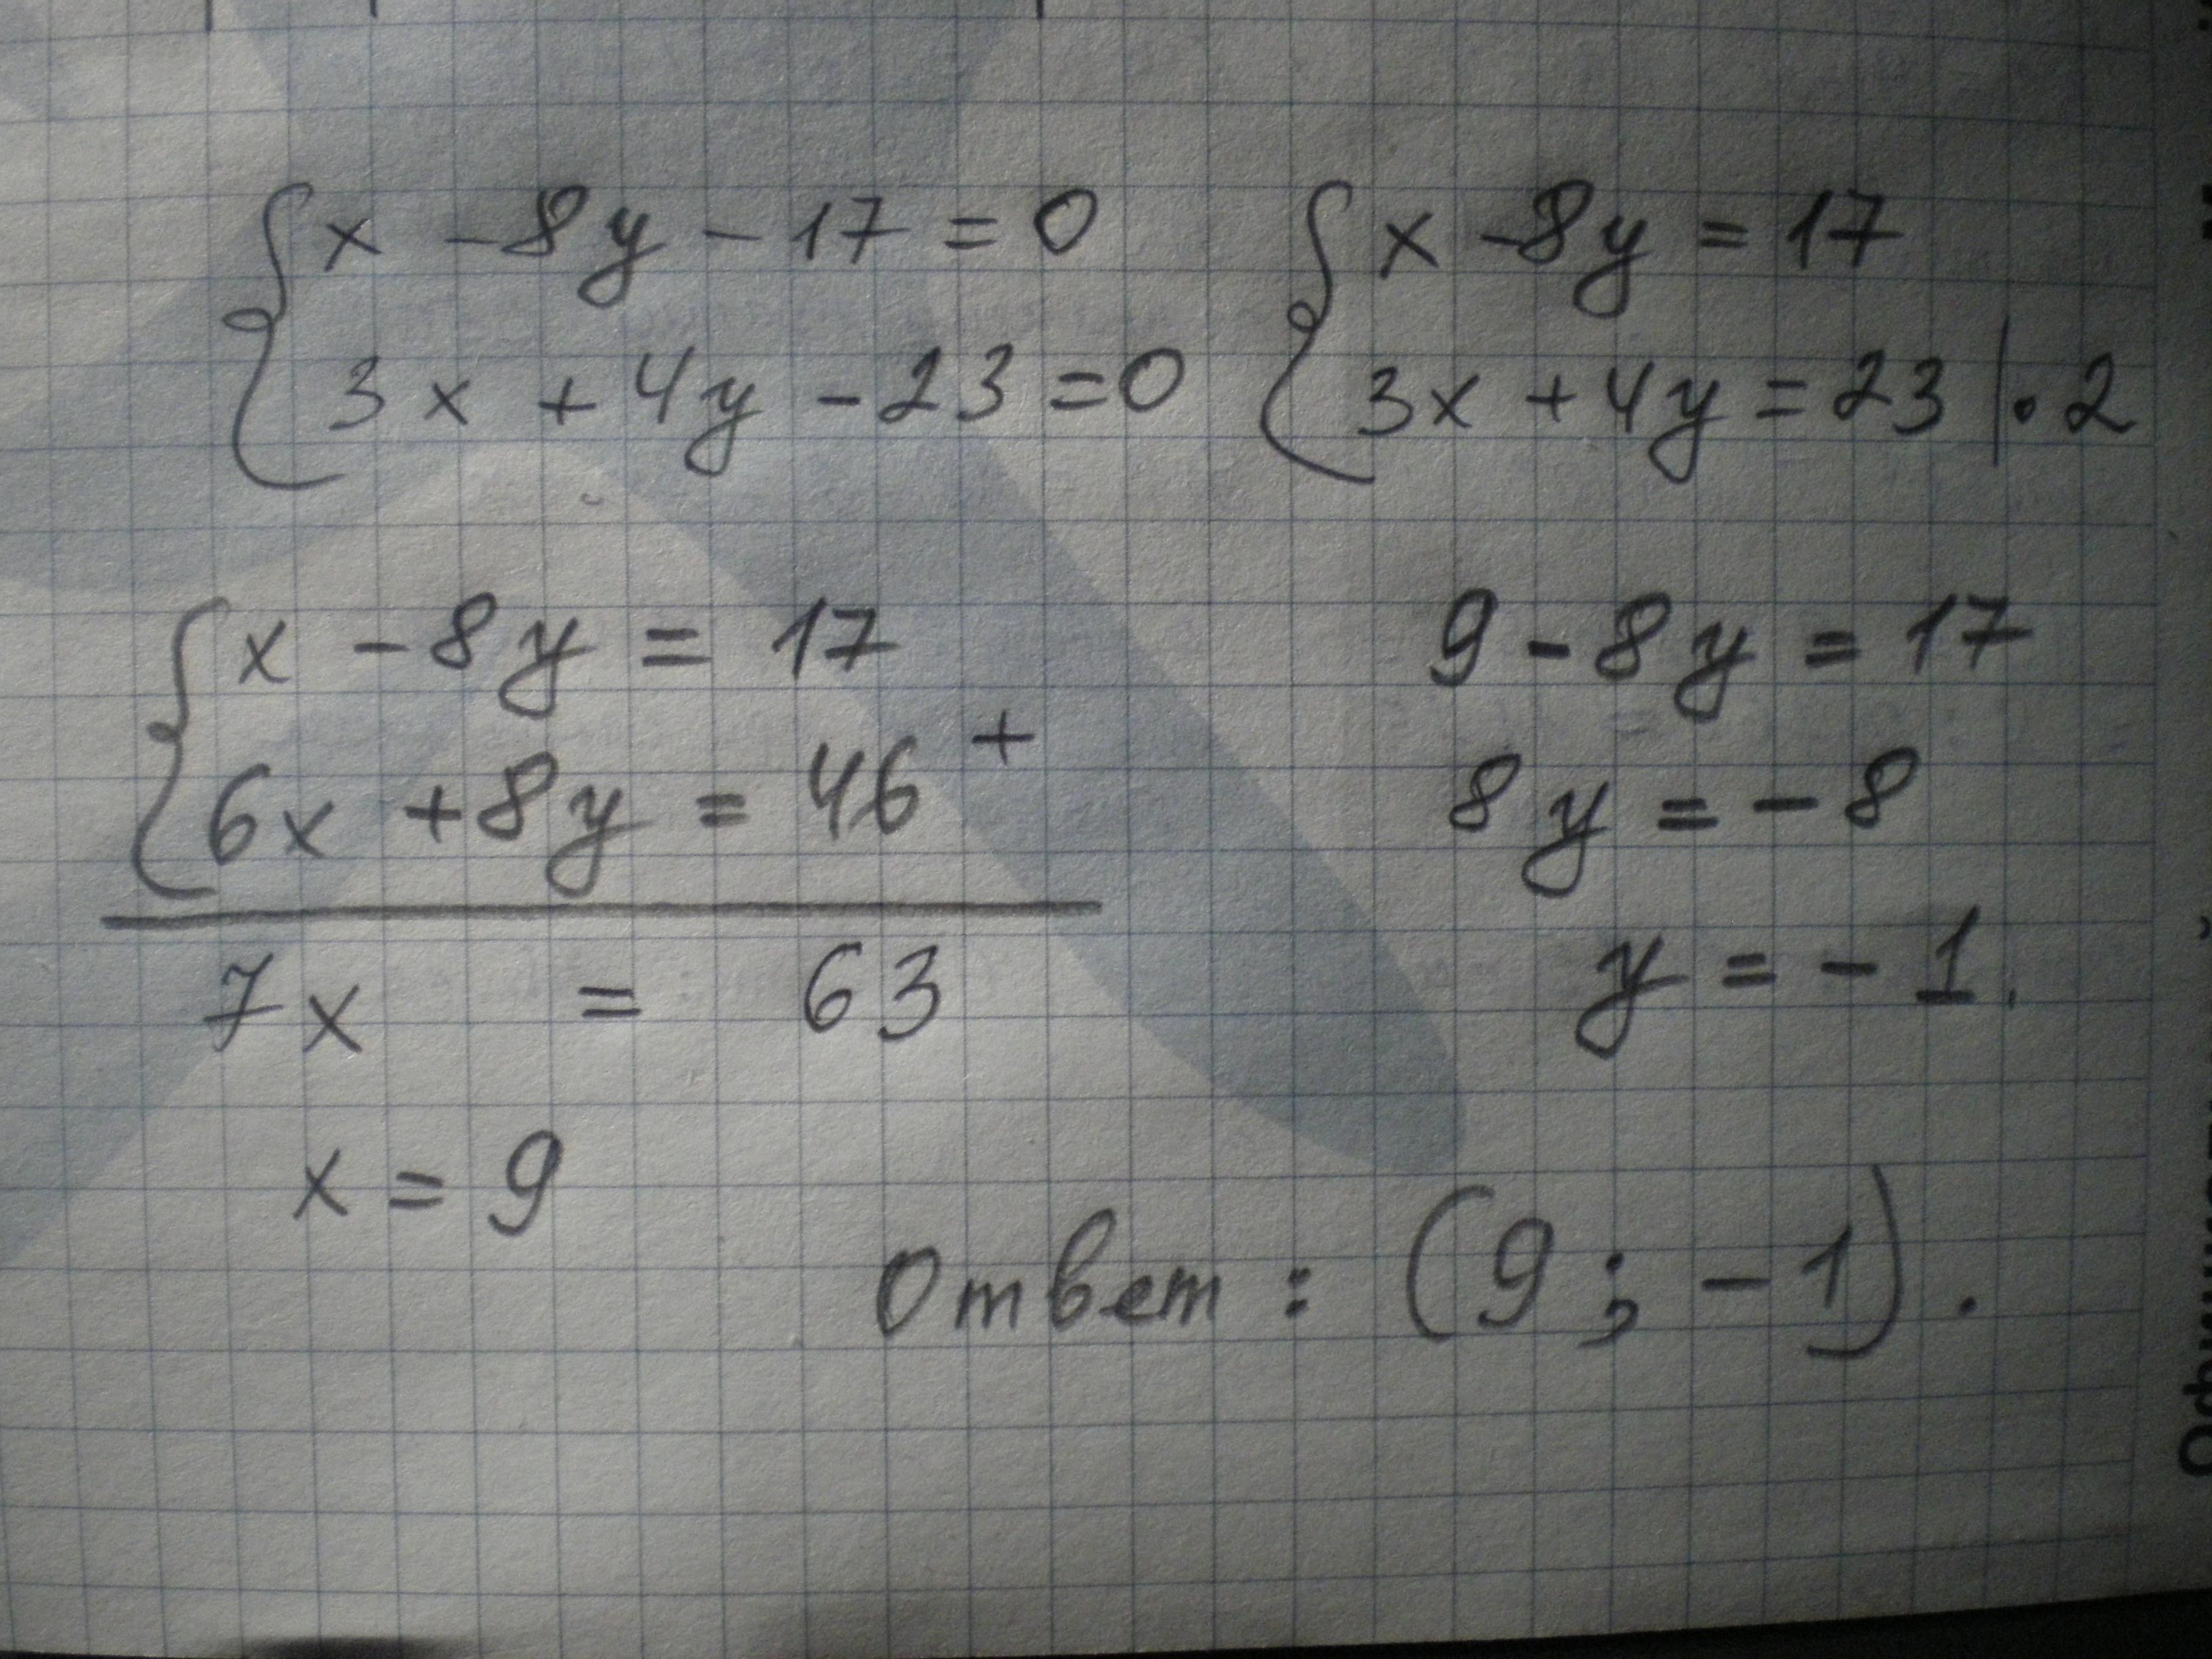 {x - 8y - 17 = 0
3x + 4y - 23 = 0
{x - 8y = 17
3x + 4y = 23 | · 2
{x - 8y = 17
6x + 8y = 46 +
7x = 63
x = 9
9 - 8y = 17
8y = - 8
y = - 1.
Ответ : (9 ; - 1) .